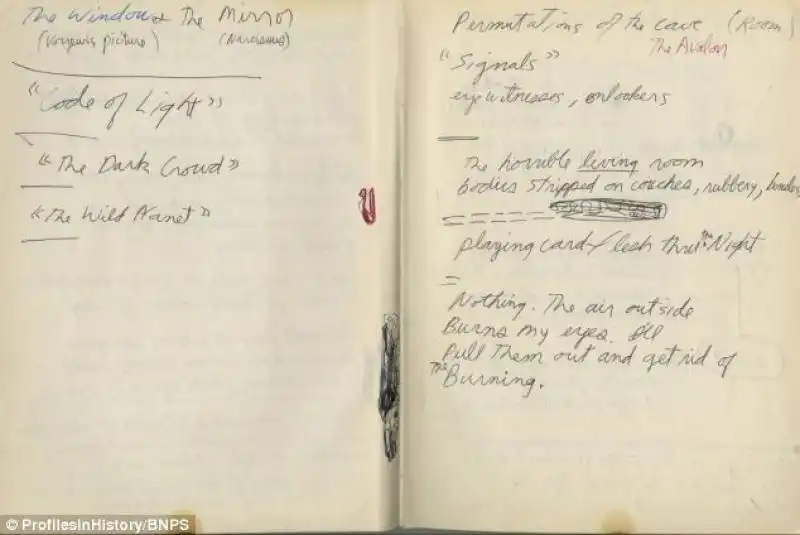 The Window & The Mirror
(Voyeur's picture) (Narcissus)
"Code of Light"
"The Dark Crowd"
"The Wild Planet"
Permutations of the cave (Room)
The Avalon
"Signals"
eyewitnesses, onlookers
The horrible living room
bodies stripped on couches, rubbery,
playing card/ thru the Night
Nothing. The air outside
Burns my eyes. I'll
Pull Them out and get rid of
The Burning.
© ProfilesInHistory/BNPS